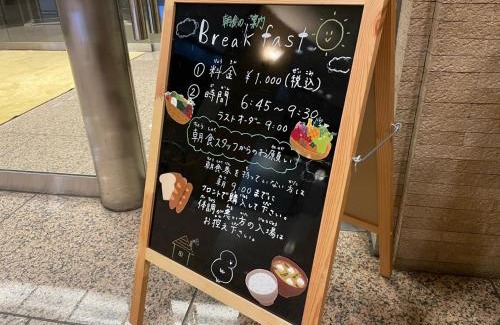 朝食のご案内
Breakfast
① 料金 ¥1,000(税込)
② 時間 6:45~9:30
ラストオーダー 9:00
朝食スタッフからのお願い!
朝食券を持っていない方は
朝 9:00までに
フロントで購入して下さい。
体調が悪い方の入場は
お控え下さい。